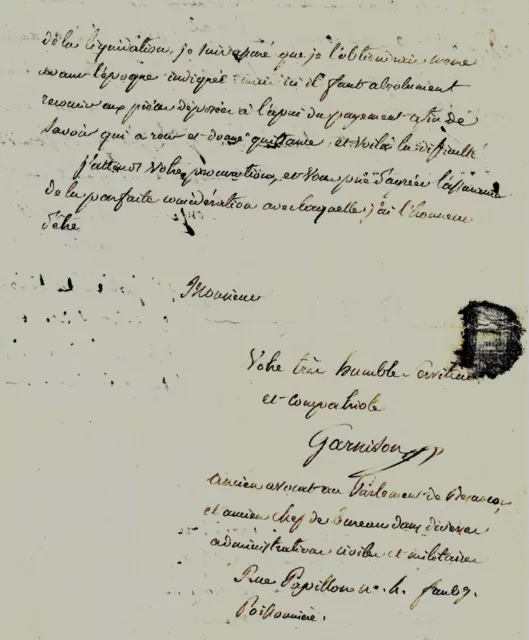 de la liquidation, je suis assuré que je l'obtiendrai même
avant l'époque indiquée mais ici il faut absolument
recourir aux pièces déposées à l'apui du payement afin de
savoir qui a reçu et donné quittance, et voilà la difficulté
j'attends votre procuration, et vous prie d'agréer l'assurance
de la parfaite considération avec laquelle j'ai l'honneur
d'être
Monsieur
Votre très humble serviteur
et compatriote
Garnison
ancien avocat au Parlement de Besançon,
et ancien chef de bureau dans diverses
administrations civiles et militaires
Rue Papillon n.o 4. faubg.
Poissonnière.